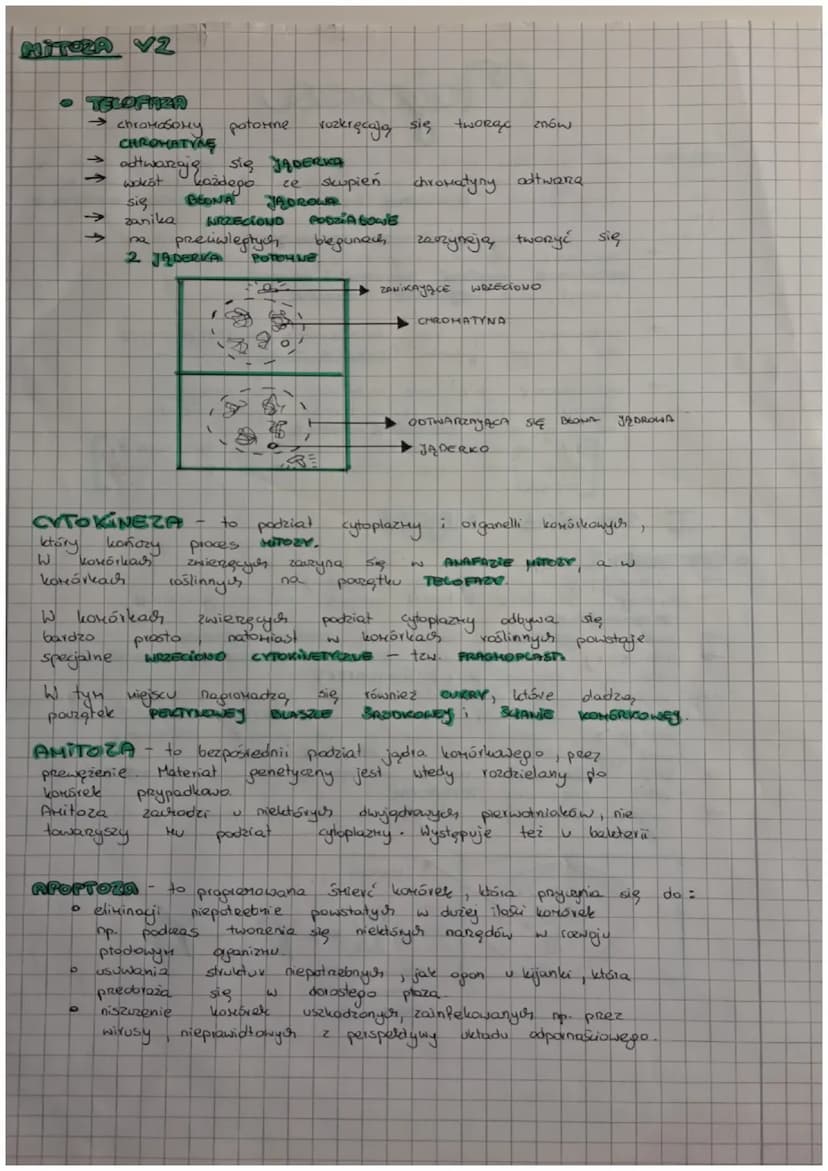 MITOZA V2
• TELOFAZA
→ chromosomy potomne rozkręcają się tworząc znów
CHROMATYNĘ
→ odtwarzają się JĄDERKA
→ wokół każdego ze skupień chromatyny odtwarza
się BŁONA JĄDROWA
→ zanika WRZECIONO PODZIAŁOWE
→ na przeciwległych biegunach zaczynają tworzyć się
2 JĄDERKA POTOMNE
ZANIKAJĄCE WRZECIONO
CHROMATYNA
ODTWARZAJĄCA SIĘ BŁONA JĄDROWA
JĄDERKO
CYTOKINEZA - to podział cytoplazmy i organelli komórkowych,
który kończy proces MITOZY.
W komórkach zwierzęcych zaczyna się w ANAFAZIE MITOZY, a w
komórkach roślinnych na początku TELOFAZY.
W komórkach zwierzęcych podział cytoplazmy odbywa się
bardzo prosto, natomiast w komórkach roślinnych powstaje
specjalne WRZECIONO CYTOKINETYCZNE - tzw. FRAGMOPLAST.
W tym miejscu nagromadzą się również CUKRY, które dadzą
początek PEKTYNOWEJ BLASZLE ŚRODKOWEJ i ŚCIANIE KOMÓRKOWEJ.
AMITOZA - to bezpośredni podział jądra komórkowego, przez
przewężenie. Materiał genetyczny jest wtedy rozdzielany do
komórek przypadkowo.
Amitoza zachodzi u niektórych dwujądrowych pierwotniaków, nie
towarzyszy mu podział cytoplazmy. Występuje też u bakterii.
APOPTOZA - to programowana śmierć komórek, która przyczynia się do:
• eliminacji niepotrzebnie powstałych w dużej ilości komórek
np. podczas tworzenia się niektórych narządów w rozwoju
płodowym organizmu.
• usuwania struktur niepotrzebnych, jak ogon u kijanki, która
przeobraża się w dorosłego płaza.
• niszczenie komórek uszkodzonych, zainfekowanych np. przez
wirusy, nieprawidłowych z perspektywy układu odpornościowego.